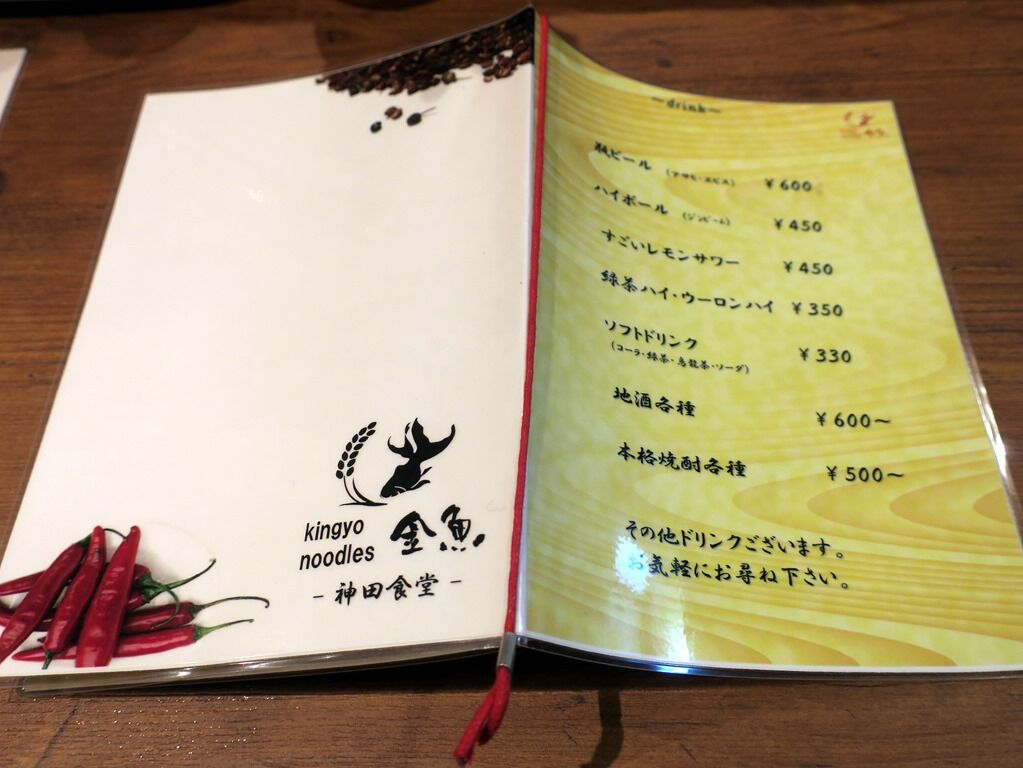 kingyo
noodles
金魚
- 神田食堂 -
～drink～
瓶ビール (アサヒ・エビス) ￥600
ハイボール (ジンビーム) ￥450
すごいレモンサワー ￥450
緑茶ハイ・ウーロンハイ ￥350
ソフトドリンク ￥330
(コーラ・緑茶・烏龍茶・ソーダ)
地酒各種 ￥600～
本格焼酎各種 ￥500～
その他ドリンクございます。
お気軽にお尋ね下さい。